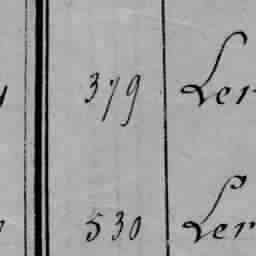 379 Ler
530 Ler